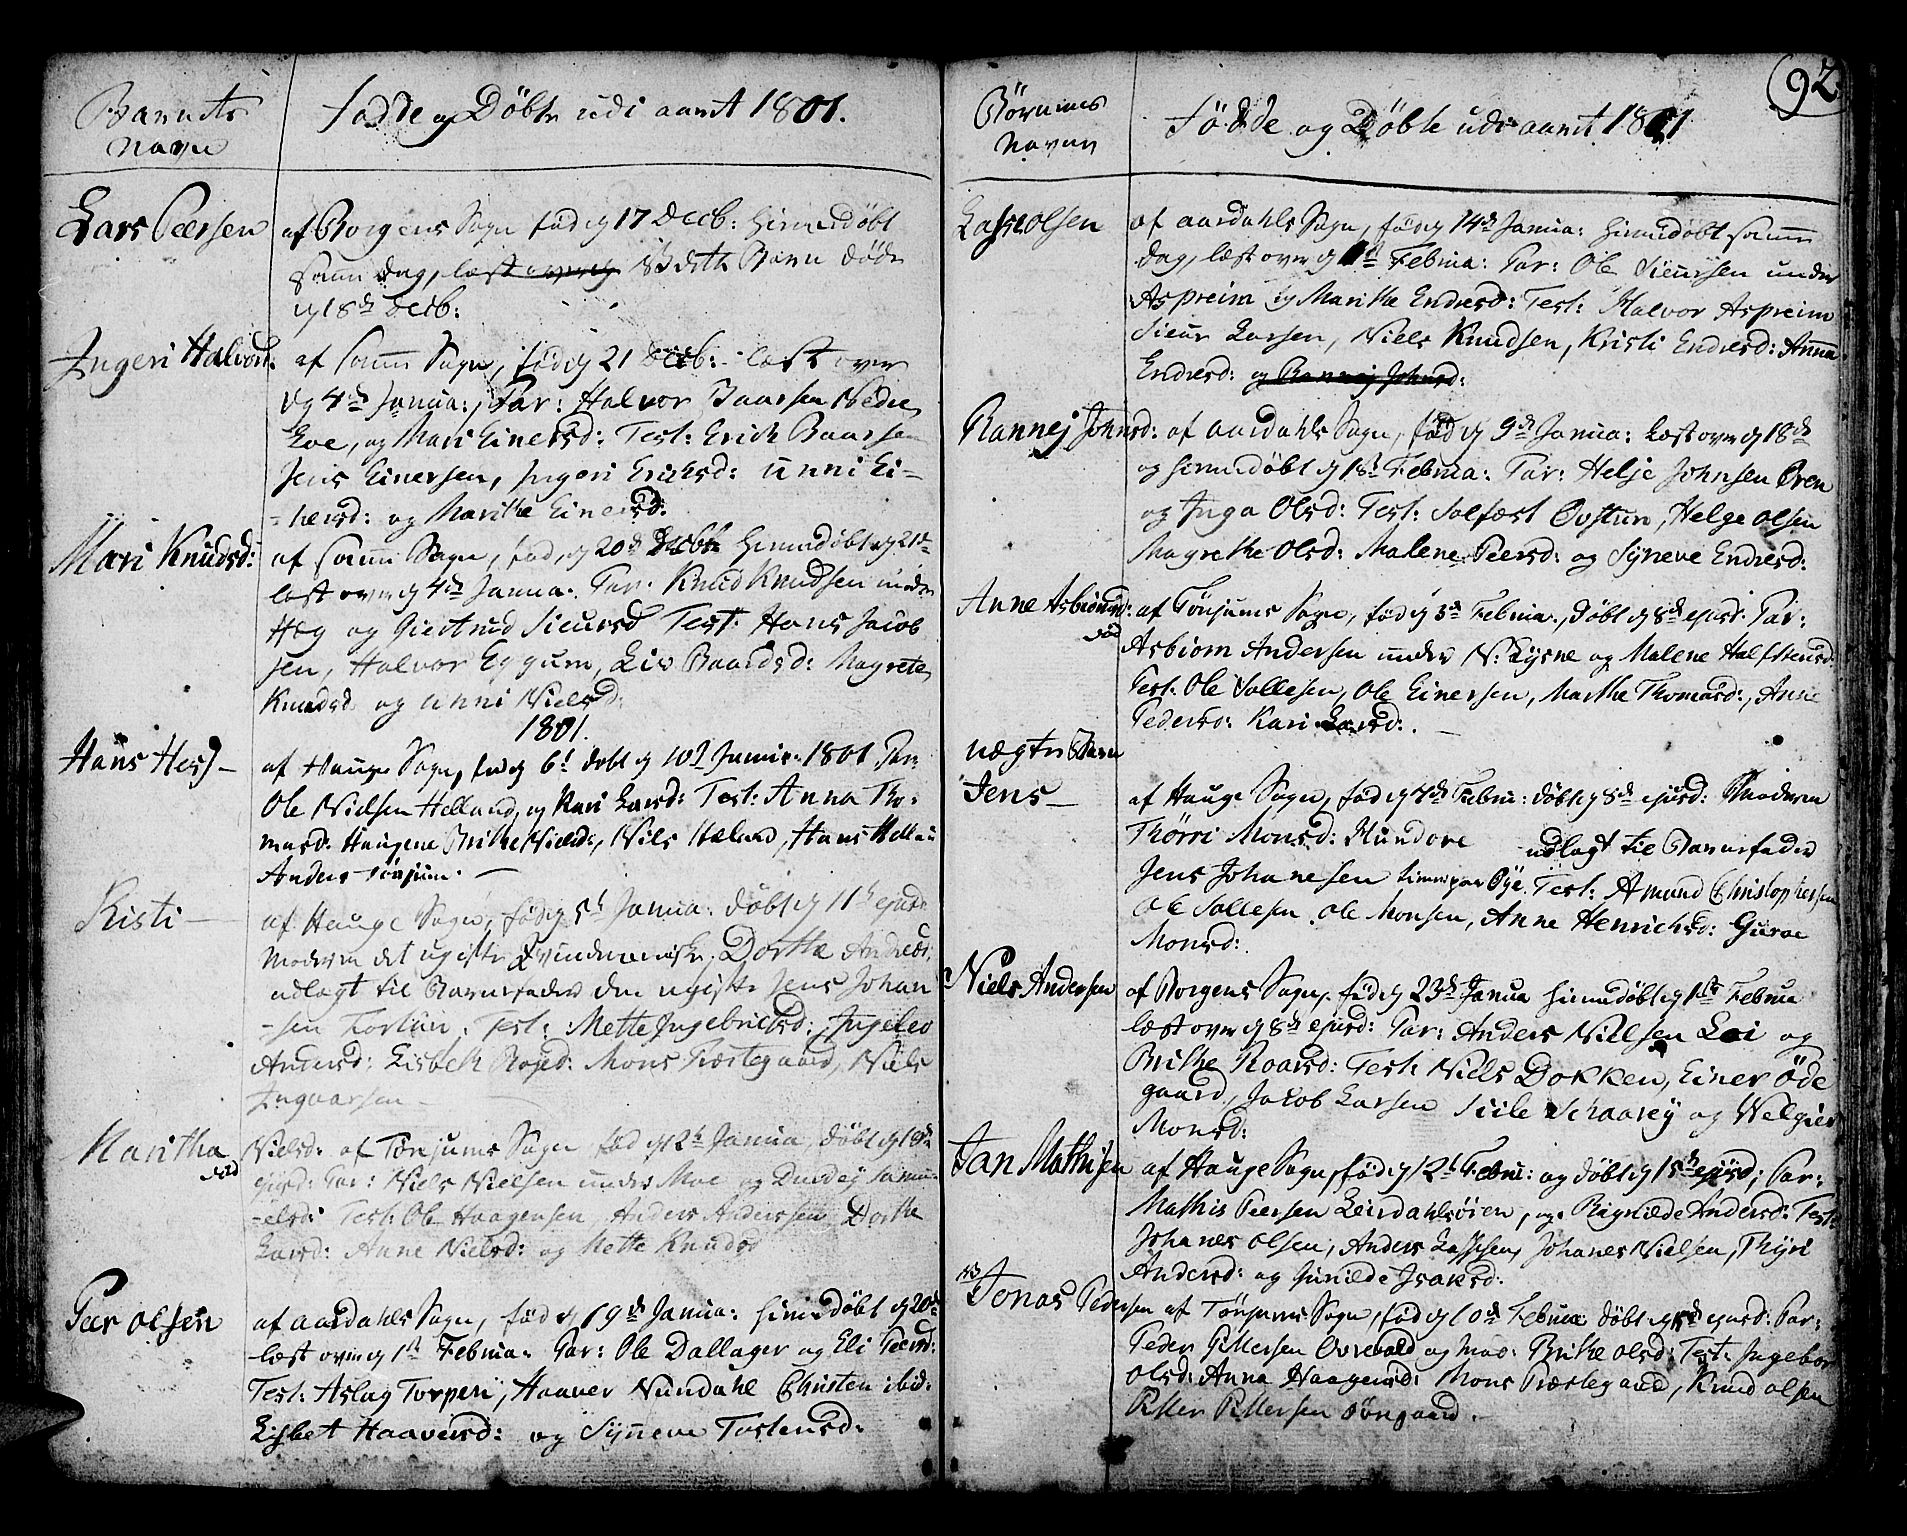 Barnets
Navn
Födde og Döbte udi aaret 1801.
Lars Peersen
af Borgens Sogn föd d 17 Decb: hiemmedöbt
samme dag, læst over d dette Barn döde
d 18de Decb:
Ingeri Halvorsd:
af samme Sogn, föd d 21 Decb: læst over
d 4de Janua:, Par: Halvor Baarsen Nedre
Loe, og Mari Einersd: Test: Erich Baarsen
Jens Einersen, Ingeri Erichsd: Unni Ei-
-nersd: og Marithe Einersd:
Mari Knudsd:
af samme Sogn, föd d 20de Decbr hiemmedöbt d 21de
læst over d 4de Janua. Par: Knud Knudsen under
Hæg og Giertrud Sieursd Test: Hans Jacob
sen, Halvor Eggum, Liv Baardsd: Magrete
Knudsd og Unni Nielsd:
1801.
Hans Hess-
af Hauge Sogn, föd d 6t döbt d 10d Janua: 1801 Par:
Ole Nielsen Helland, og Kari Larsd: Test: Anna Tho-
masd: Haugene Brithe Nielsd:, Nils Hæland, Hans Hellan
Anders Tönjum.
Kisti -
af Hauge Sogn, föd d 5t Janua: döbt d 11te ejusd:
Moderen det ugifte Qvindemenniske Dorthe Andersd:
udlagt til Barnefader den ugifte Jens Johan
-sen Fortun. Test: Mette Ingebrictsd:, Ingelev
Andersd: Lisbeth Roied: Mons Præstegaard, Niels
Ingvarsen
Maritha
Nielsd: af Tönjums Sogn föd d 12te Janua döbt d 18de
ejusd: Par: Niels Nielsen under Moe og Durdey Samu-
-elsd: Test: Ole Haagensen, Anders Anderssen, Dorthe
Larsd: Anne Nielsd: og Mette Knudsd
Peer Olsen
af Aardahls Sogn, föd d 19de Janua: hiemmedöbt d 20de
læst over d 1ste Februa: Par: Ole Dallager og Eli Peersd:
Test: Aslag Torperi, Haaver Nundahl Christen ibid:
Lisbet Haaversd: og Synneve Tostensd:
92
Börnenes
Navne
Födde og Döbte udi aaret 1801
Lasse Olsen
af Aardahls Sogn, föd d 14de Janua: hiemmedöbt samme
dag, læst over d 1st Februa: Par: Ole Sieursen under
Aspreim og Marithe Endresd: Test: Halvor Aspreim
Sieur Larsen, Niels Knudsen, Kristi Endresd: Anna
Endresd: og Rannej Johnsd:
Rannej Johnsd:
af Aardahls Sogn, föd d 9de Janua: læst over d 18de
og hiemmedöbt d 1st Februa: Par: Helje Johnsen Ören
og Inga Olsd: Test: Solfæst Övstun, Helge Olsen
Magrethe Olsd: Malene Peersd: og Syneve Endresd:
Anne Asbiörnsd:
af Tönjums Sogn, föd d 3de Februa., döbt d 8de ejusd. Par:
Asbiorn Andersen under N: Lysne og Malene Halfstensd:
Test: Ole Sallesen, Ole Einersen, Marthe Thomasd:, Anne
Pedersd: Kari Larsd:.
uægte Barn
Jens-
af Hauge Sogn, föd d 7de Februa: döbt d 8de ejusd: Moderen
Thörri Monsd: Hundere udlagt til Barnefader
Jens Johanesen Öye. Test: Amund Christophersen
Ole Sallesen, Ole Monsen, Anne Henrichsd: Guroe
Monsd:
Niels Andersen
af Borgens Sogn, föd d 23de Janua hiemmedöbt d 1ste Februa
læst over d 8de ejusd: Par: Anders Nielsen Loi og
Brithe Roarsd: Test: Niels Dokken, Einer Öde
gaard, Jacob Larsen Siile Schaarej og Welgier
Monsd:
Jan Mathisen
af Hauge Sogn, föd d 12t Februa: og döbt d 15de ejusd; Par:
Mathis Peersen Leirdahlsöien, og Ragnilde Andersd: Test:
Johanes Olsen, Anders Lassesen, Johanes Nielsen, Thyri
Andersd: og Gunilde Isaksd:
NB
Jonas Pedersen
af Tönjums Sogn, föd d 10de Februa döbt d 15de ejusd: Par:
Peder Pettersen Övrevold og Mad: Brithe Olsd: Test: Ingebor
Olsd: Anna Haagensd: Mons Præstegaard, Knud Olsen
Petter Pettersen Öregaard.